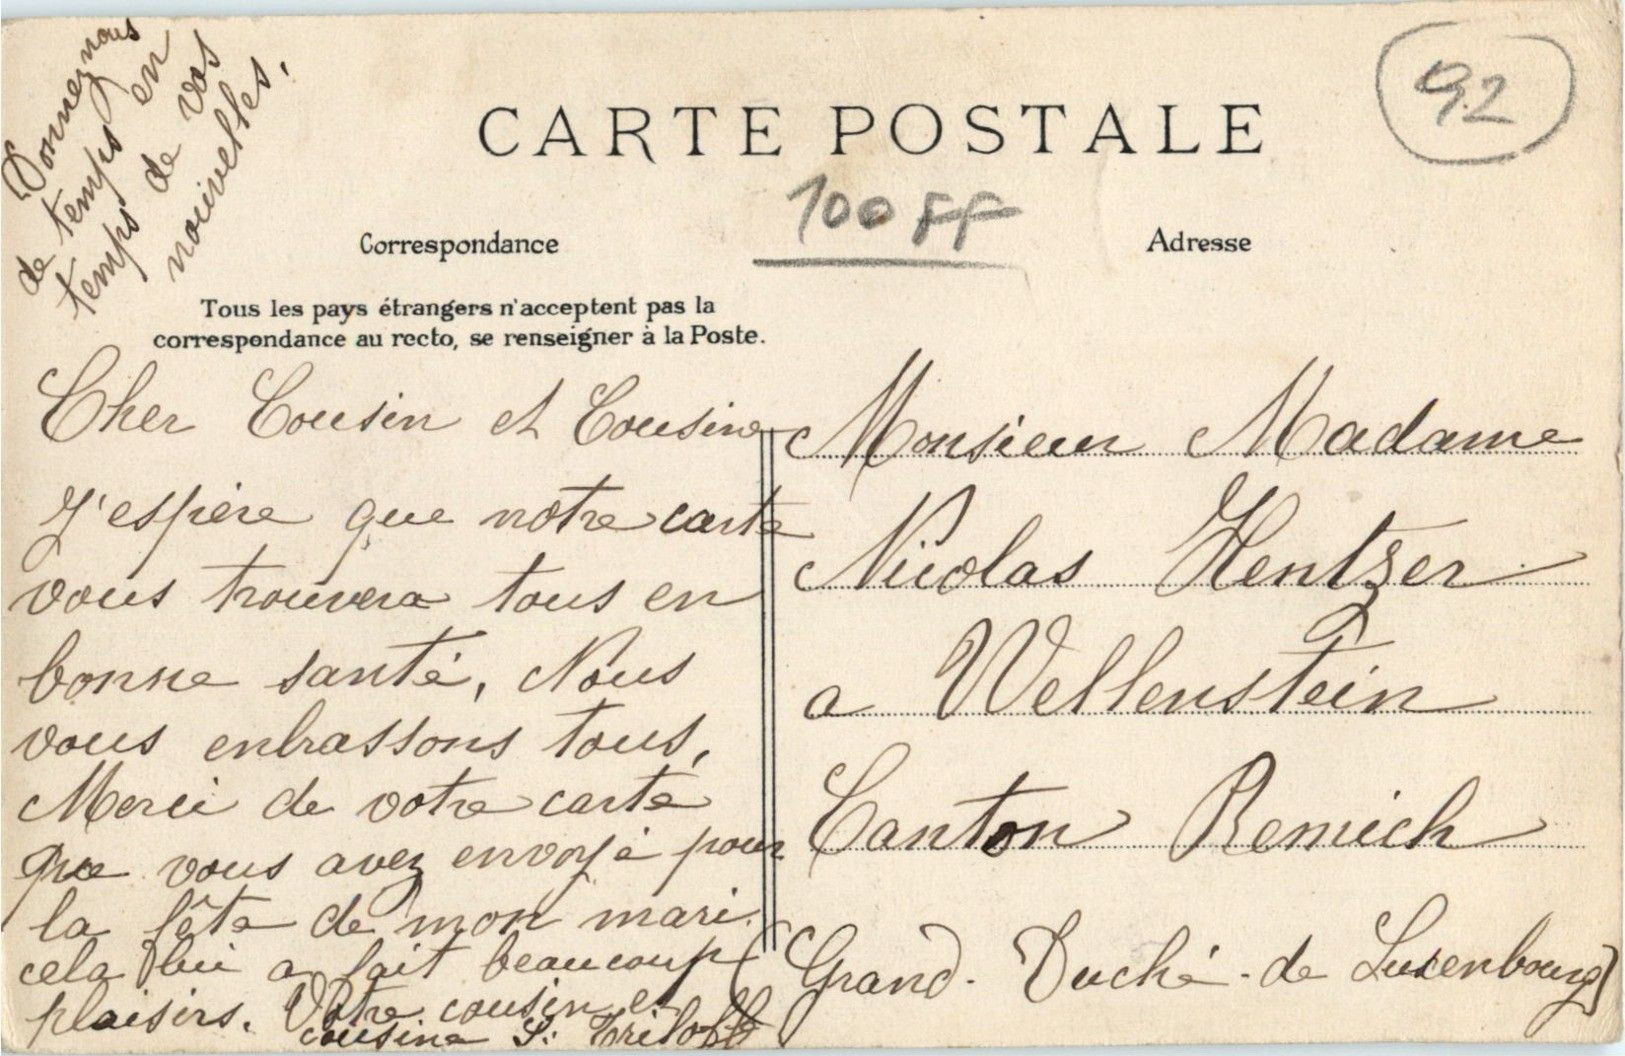 Donnez nous
de temps en
temps de vos
nouvelles.
92
CARTE POSTALE
100 FF
Correspondance
Adresse
Tous les pays étrangers n'acceptent pas la
correspondance au recto, se renseigner à la Poste.
Cher Cousin et Cousine
J'espère que notre carte
vous trouvera tous en
bonne santé, Nous
vous enbrassons tous,
Merci de votre carte
que vous avez envoyé pour
la fête de mon mari.
cela lui a fait beaucoup
plaisirs. Votre cousin et
cousine
Monsieur Madame
Nicolas Hentzer
a Wellenstein
Canton Remich
(Grand-Duché-de Luxenbourg)